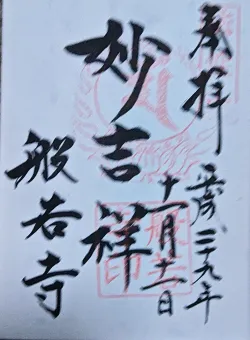 奉拝
平成二十九年
十一月十一日
妙吉祥
般若寺